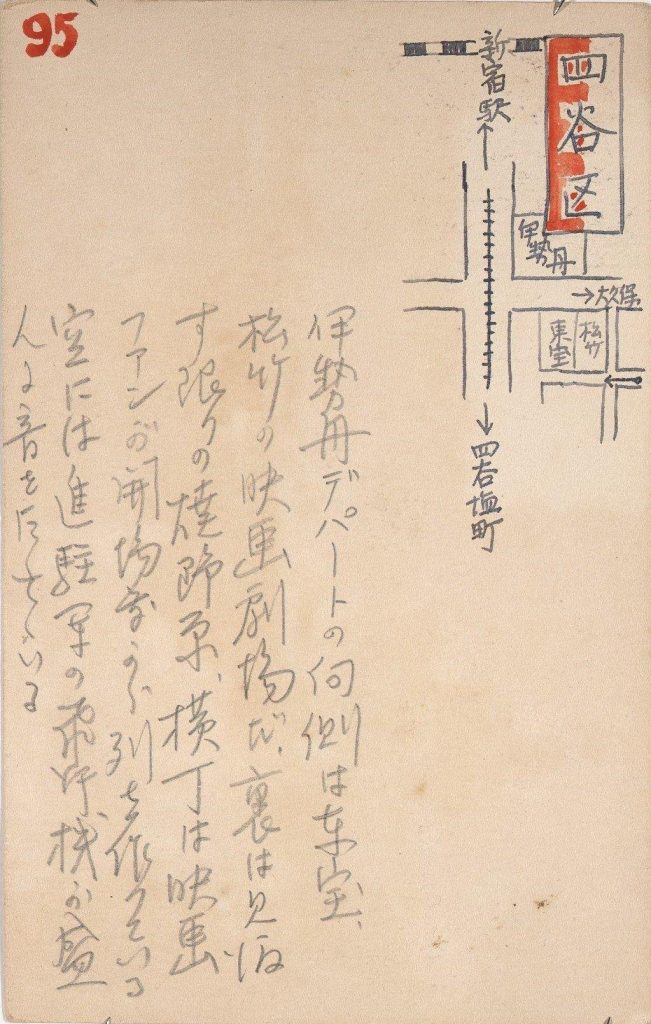 95
四谷区
新宿駅
伊勢丹
大久保
松竹
東宝
四谷塩町
伊勢丹デパートの向側は东宝、
松竹の映画劇場だ、裏は見渡
す限りの焼野原、横丁は映画
ファンが開場前から列を作つている
空には進駐軍の飛行機が盛
んに音をたてゝいる